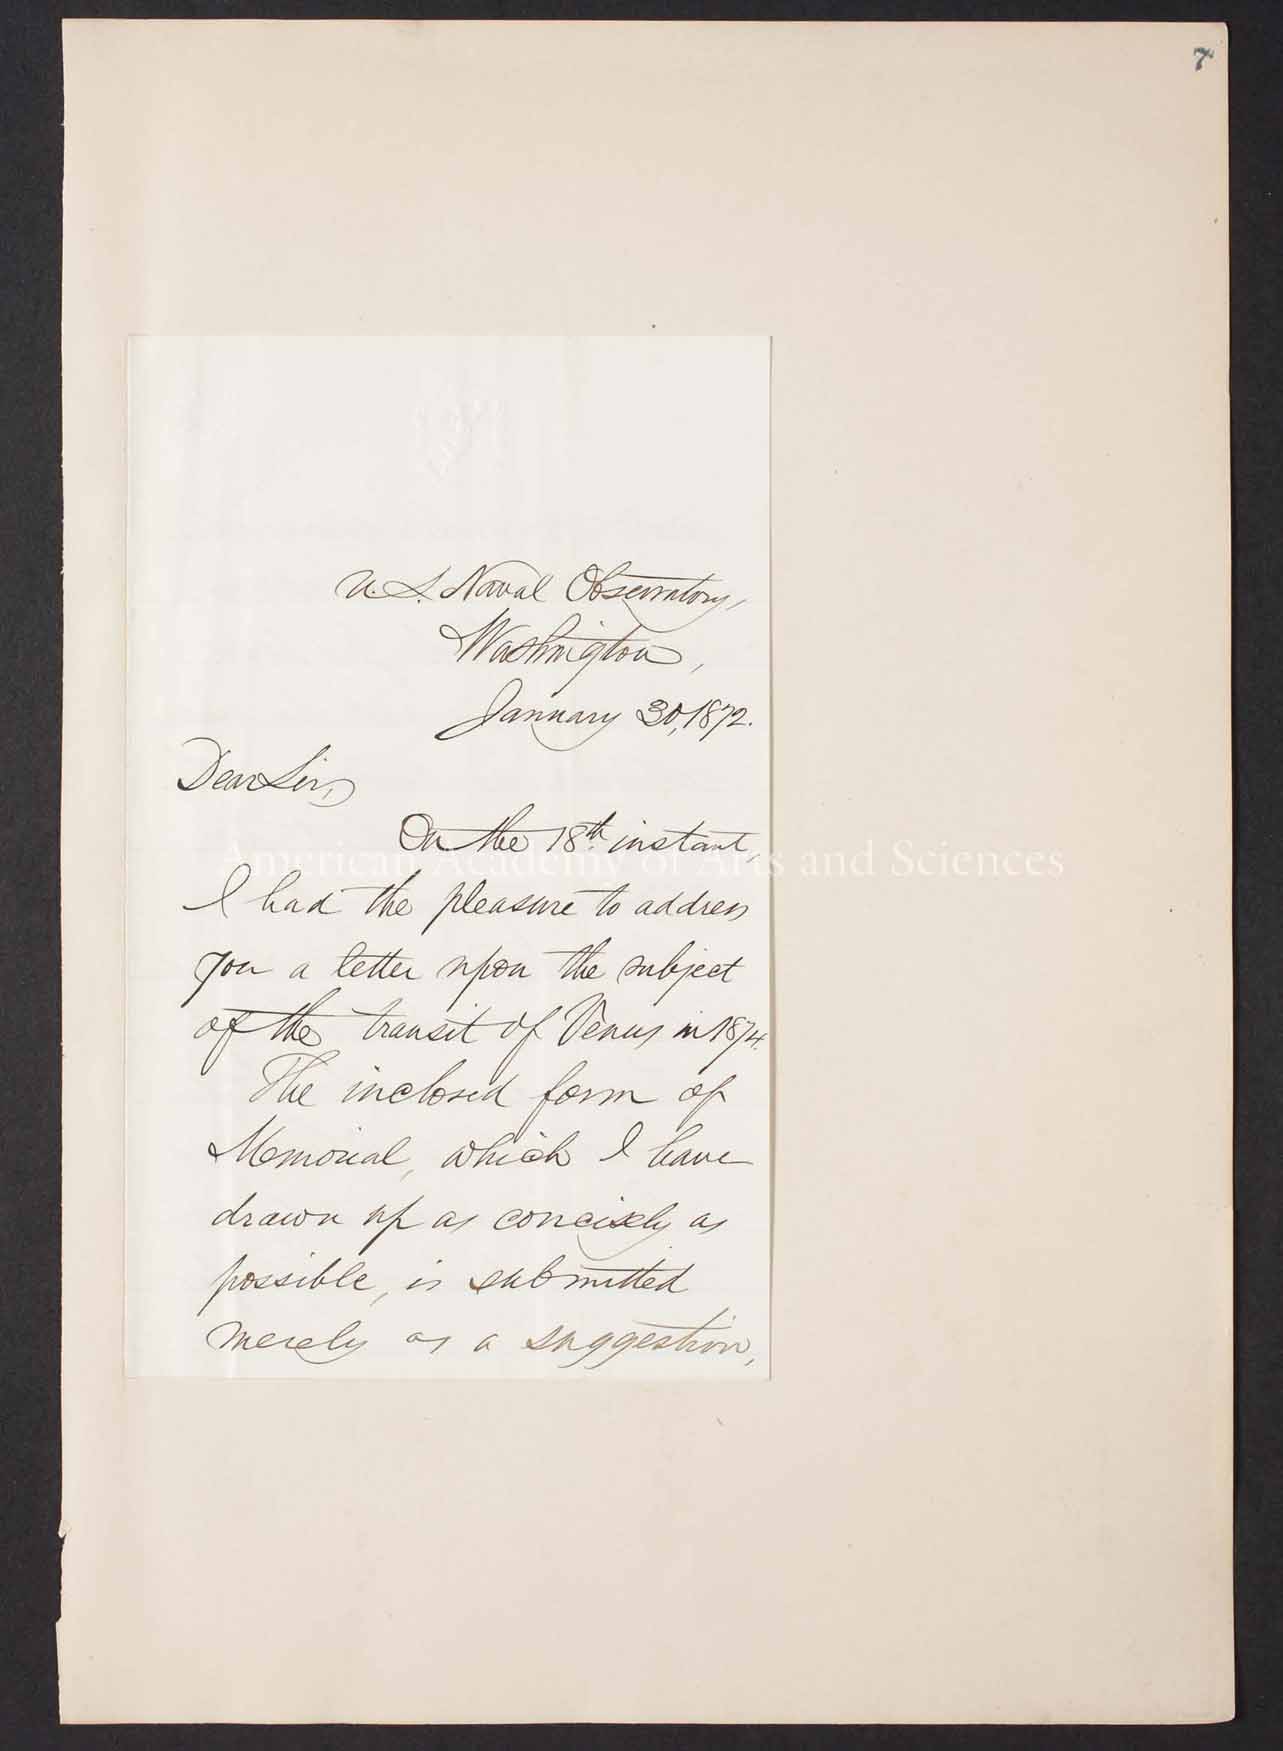 7
U.S. Naval Observatory,
Washington,
January 30, 1872.
Dear Sir,
On the 18th. instant,
American Academy of Arts and Sciences
I had the pleasure to address
you a letter upon the subject
of the transit of Venus in 1874.
The inclosed form of
Memorial, which I have
drawn up as concisely as
possible, is submitted
merely as a suggestion,